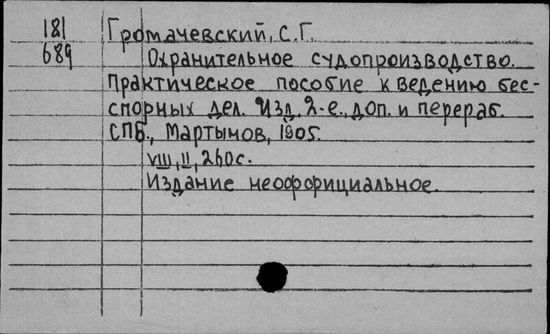 181 Громачевский, С.Г.
689 Охранительное судопроизводство.
Практическое пособие к ведению бес-
спорных дел. Изд. 2-е, доп. и перераб.
СПБ., Мартынов, 1905.
VIII, II, 260с.
Издание неофорициальное.